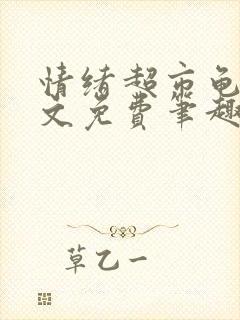 情绪超市龟
文免费笔趣
草乙一